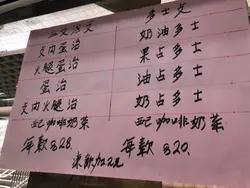 多士走
文肉蛋治
奶油多士
火腿蛋治
果占多士
蛋治
油占多士
文肉火腿治
奶占多士
配咖啡奶茶
配咖啡奶茶
每款$28.
每款$20.
凍飲加2元